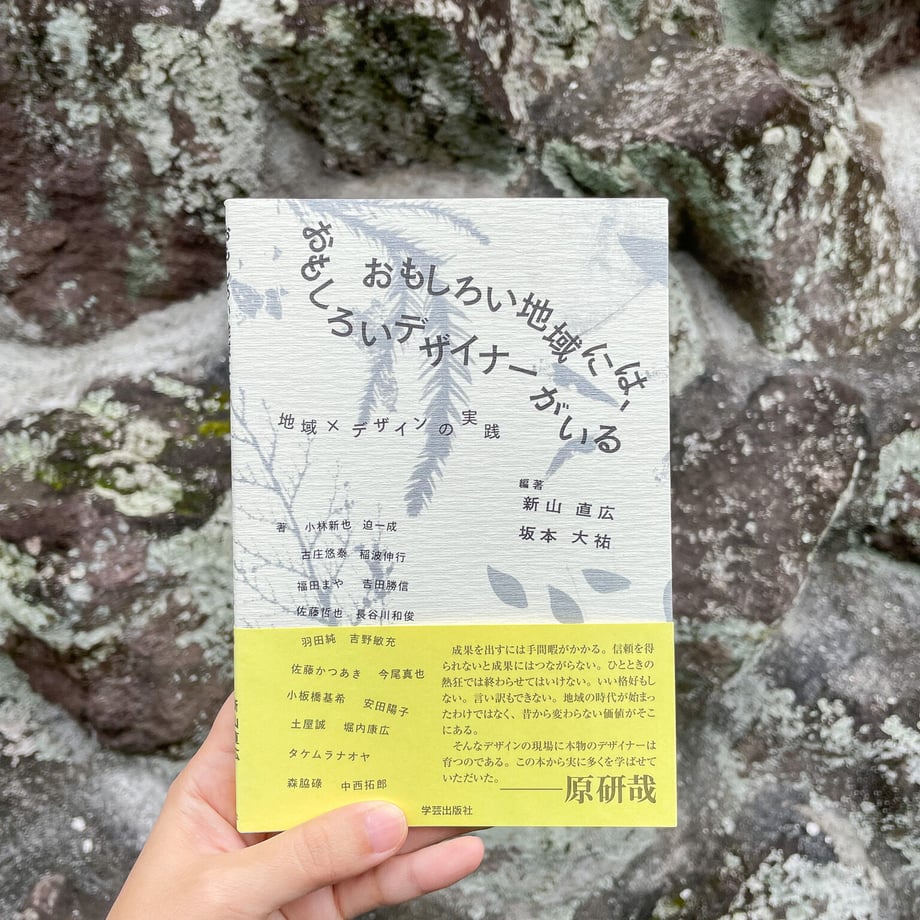 おもしろい地域には、
おもしろいデザイナーがいる
地域×デザインの実践
編著
新山 直広
坂本 大祐
著 小林新也 迫一成
古庄悠泰 稲波伸行
福田まや 吉田勝信
佐藤哲也 長谷川和俊
羽田純 吉野敏充
佐藤かつあき 今尾真也
小板橋基希 安田陽子
土屋誠 堀内康広
タケムラナオヤ
森脇碌 中西拓郎
成果を出すには手間暇がかかる。信頼を得
られないと成果にはつながらない。ひとときの
熱狂では終わらせてはいけない。いい格好もし
ない。言い訳もできない。地域の時代が始まっ
たわけではなく、昔から変わらない価値がそこ
にある。
そんなデザインの現場に本物のデザイナーは
育つのである。この本から実に多くを学ばせて
いただいた。
——原研哉
学芸出版社